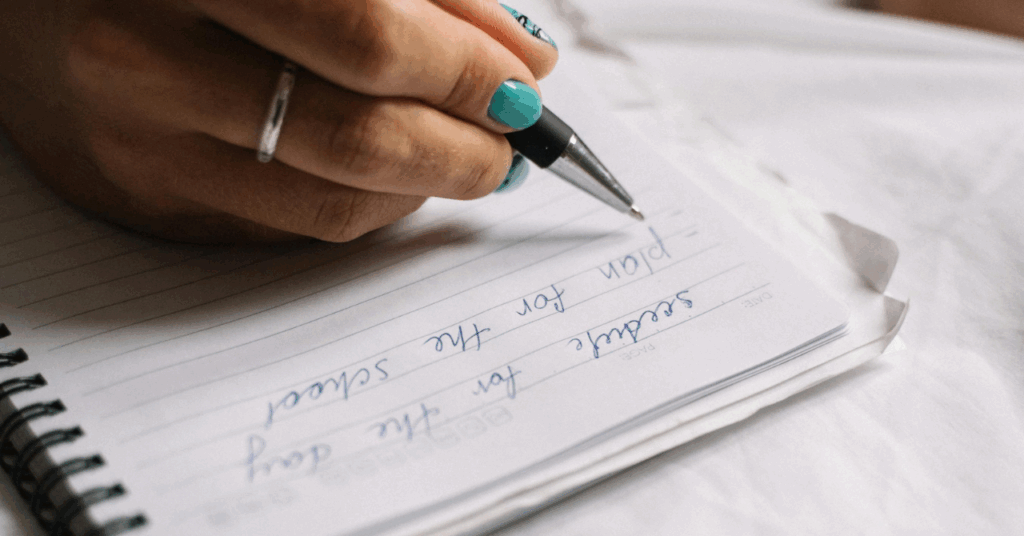 DATE: PAGE:
scedule for the day
plan for the school